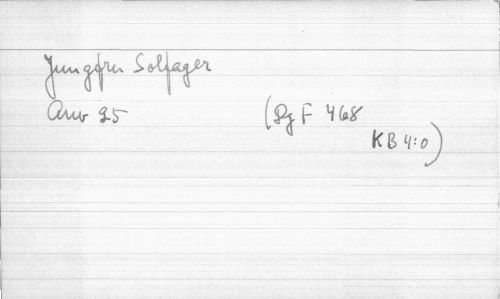 Jungfru Solfager
Arw 25 (Sg F 468
KB 4:0)